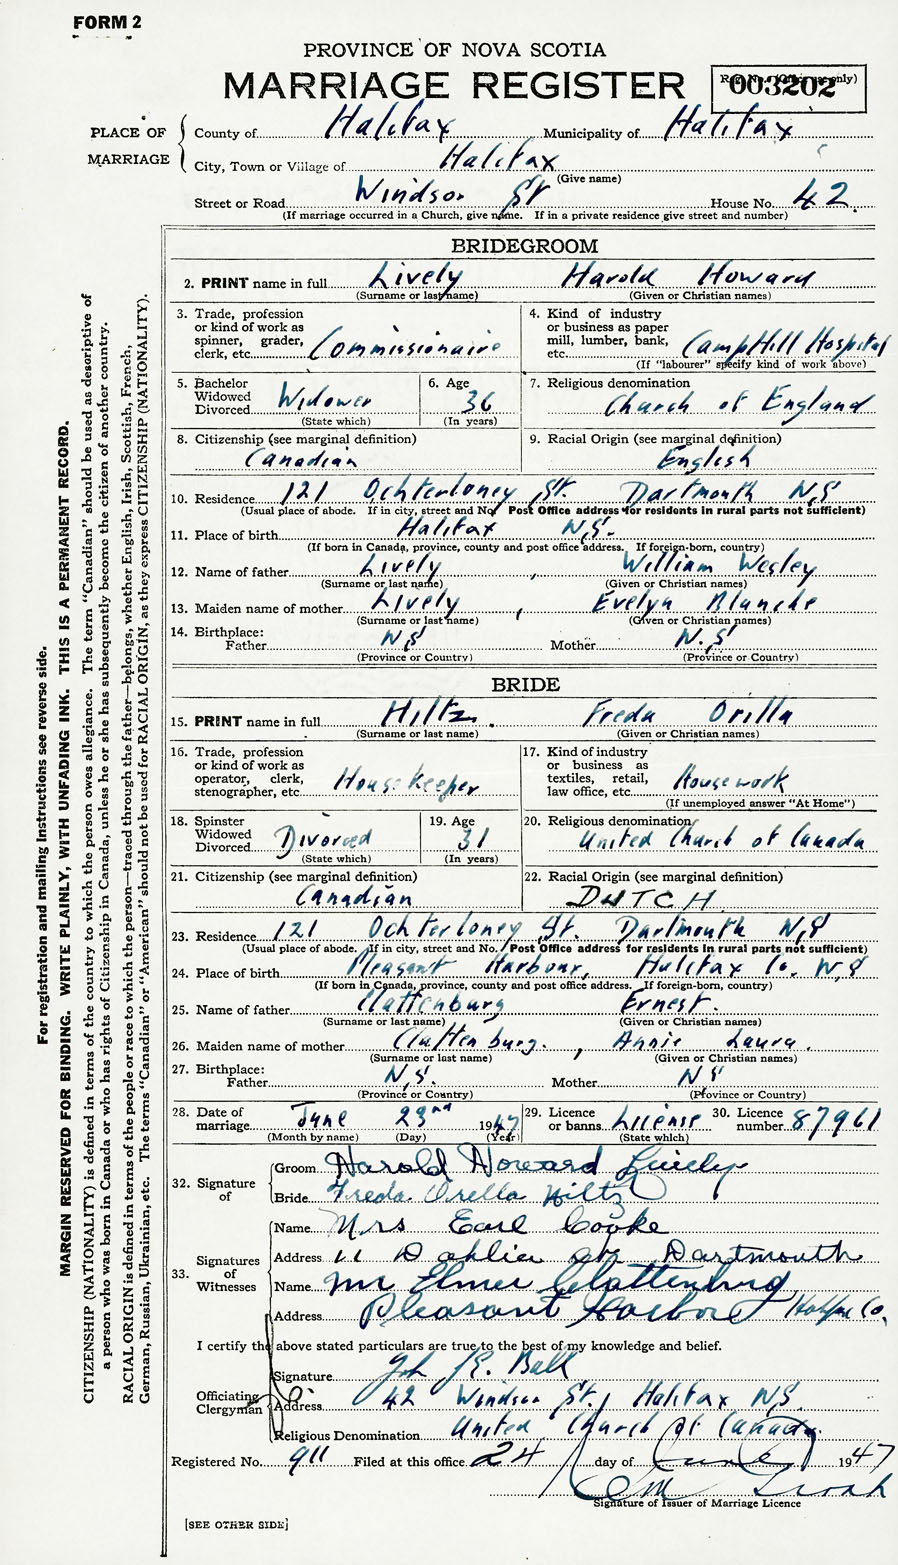 FORM 2
PROVINCE OF NOVA SCOTIA
MARRIAGE REGISTER
Reg. No. (Office use only)
003202
PLACE OF MARRIAGE
County of Halifax Municipality of Halifax
City, Town or Village of Halifax
(Give name)
Street or Road Windsor St House No. 42
(If marriage occurred in a Church, give name. If in a private residence give street and number)
BRIDEGROOM
2. PRINT name in full Lively Harold Howard
(Surname or last name) (Given or Christian names)
3. Trade, profession or kind of work as spinner, grader, clerk, etc. Commissionaire
4. Kind of industry or business as paper mill, lumber, bank, etc. CampHill Hospital
(If "labourer" specify kind of work above)
5. Bachelor Widowed Divorced Widower
(State which)
6. Age 36
(In years)
7. Religious denomination
Church of England
8. Citizenship (see marginal definition)
Canadian
9. Racial Origin (see marginal definition)
English
10. Residence 121 Ochterloney St. Dartmouth N,S
(Usual place of abode. If in city, street and No. Post Office address for residents in rural parts not sufficient)
11. Place of birth Halifax N,S.
(If born in Canada, province, county and post office address. If foreign-born, country)
12. Name of father Lively, William Wesley
(Surname or last name) (Given or Christian names)
13. Maiden name of mother Lively, Evelyn Blanche
(Surname or last name) (Given or Christian names)
14. Birthplace:
Father N,S Mother N.S
(Province or Country) (Province or Country)
BRIDE
15. PRINT name in full Hiltz. Freda Orilla
(Surname or last name) (Given or Christian names)
16. Trade, profession or kind of work as operator, clerk, stenographer, etc. Housekeeper
17. Kind of industry or business as textiles, retail, law office, etc. Housework
(If unemployed answer "At Home")
18. Spinster Widowed Divorced Divorced
(State which)
19. Age 31
(In years)
20. Religious denomination
United Church of Canada
21. Citizenship (see marginal definition)
Canadian
22. Racial Origin (see marginal definition)
DUTCH
23. Residence 121 Ochterloney St. Dartmouth N,S
(Usual place of abode. If in city, street and No. Post Office address for residents in rural parts not sufficient)
24. Place of birth Pleasant Harbour, Halifax Co. N,S
(If born in Canada, province, county and post office address. If foreign-born, country)
25. Name of father Clattenburg Ernest.
(Surname or last name) (Given or Christian names)
26. Maiden name of mother Clattenburg, Annie Laura.
(Surname or last name) (Given or Christian names)
27. Birthplace:
Father N,S. Mother N S
(Province or Country) (Province or Country)
28. Date of marriage June 23rd 1947
(Month by name) (Day) (Year)
29. Licence or banns License
(State which)
30. Licence number 87961
32. Signature of
Groom Harold Howard Lively
Bride Freda Orella Hiltz
33. Signatures of Witnesses
Name Mrs Earl Cooke
Address 11 Dahlia St Dartmouth
Name Mr Elmer Clattenburg
Address Pleasant Harbor Halifax Co,
I certify the above stated particulars are true to the best of my knowledge and belief.
Officiating Clergyman
Signature Ball
Address 42 Windsor St., Halifax N,S.
Religious Denomination United Church of Canada
Registered No. 911 Filed at this office 24 day of June 1947
Signature of Issuer of Marriage Licence
[SEE OTHER SIDE]
For registration and mailing instructions see reverse side.
MARGIN RESERVED FOR BINDING. WRITE PLAINLY, WITH UNFADING INK. THIS IS A PERMANENT RECORD.
CITIZENSHIP (NATIONALITY) is defined in terms of the country to which the person owes allegiance. The term "Canadian" should be used as descriptive of
a person who was born in Canada or who has rights of Citizenship in Canada, unless he or she has subsequently become the citizen of another country.
RACIAL ORIGIN is defined in terms of the people or race to which the person—traced through the father—belongs, whether English, Irish, Scottish, French,
German, Russian, Ukrainian, etc. The terms "Canadian" or "American" should not be used for RACIAL ORIGIN, as they express CITIZENSHIP (NATIONALITY).